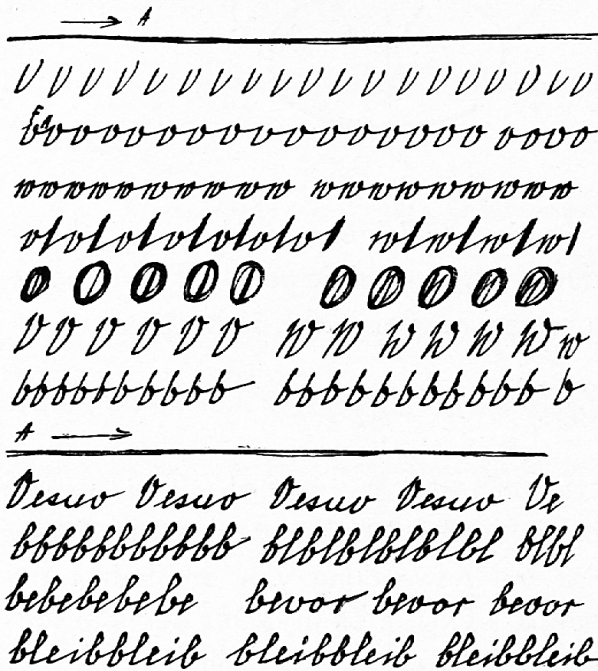 → A
v v v v v v v v v v v v v v v v v v v
bvvvvvvvvvvvvvvv vvvv
wwwwwwwwww wwwwwwwww
vlvlvlvlvlvlvl wlwlwlwl
O O O O O O O O O O
V V V V V V W W W W W W w
bbbbbbbbbb bbbbbbbbbb b
A →
Vesuv Vesuv Vesuv Vesuv Ve
bbbbbbbbbbb blblblblblbl blbl
bebebebebe bevor bevor bevor
bleibbleib bleibbleib bleibbleib